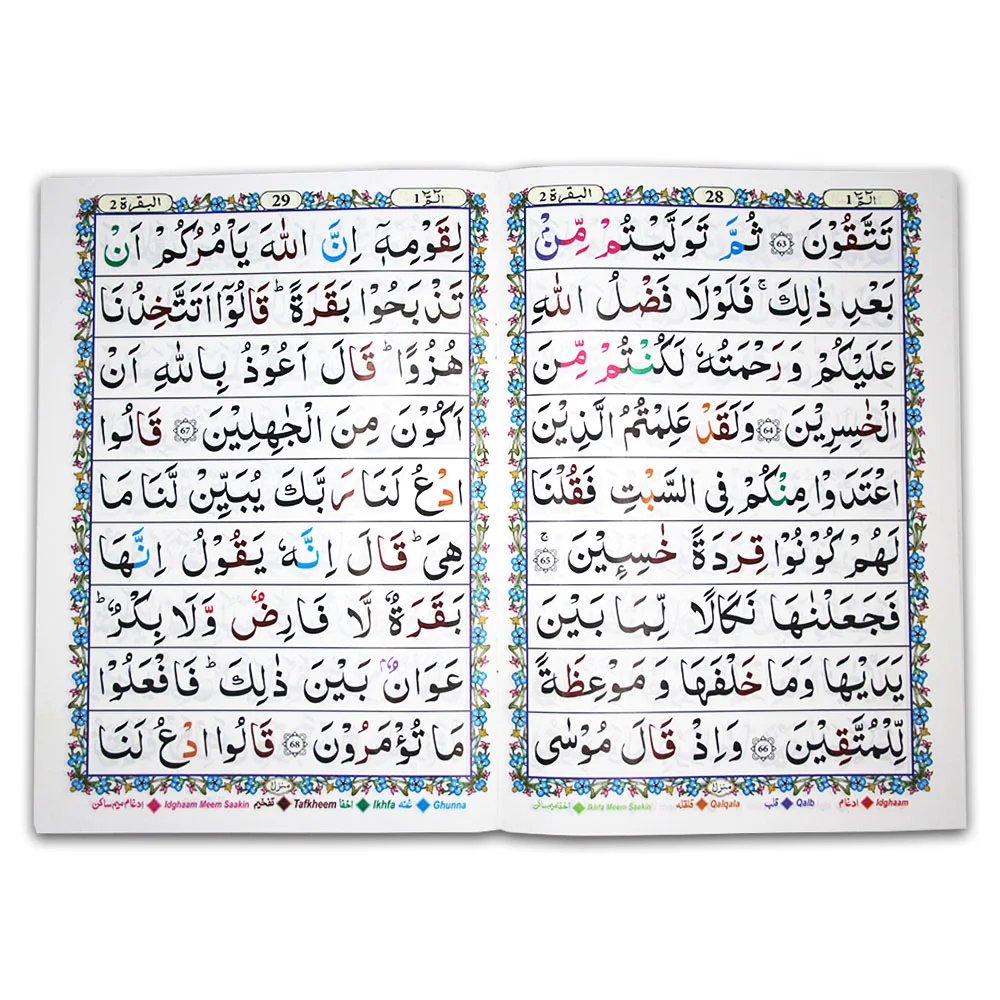 الٓمّٓ 1
28
البقرة 2
تَتَّقُوْنَ ﴿63﴾ ثُمَّ تَوَلَّيْتُمْ مِّنْۢ
بَعْدِ ذٰلِكَ ۚ فَلَوْلَا فَضْلُ اللّٰهِ
عَلَيْكُمْ وَرَحْمَتُهٗ لَكُنْتُمْ مِّنَ
الْخٰسِرِيْنَ ﴿64﴾ وَلَقَدْ عَلِمْتُمُ الَّذِيْنَ
اعْتَدَوْا مِنْكُمْ فِى السَّبْتِ فَقُلْنَا
لَهُمْ كُوْنُوْا قِرَدَةً خٰسِـِٕيْنَ ۚ ﴿65﴾
فَجَعَلْنٰهَا نَكَالًا لِّمَا بَيْنَ
يَدَيْهَا وَمَا خَلْفَهَا وَ مَوْعِظَةً
لِّلْمُتَّقِيْنَ ﴿66﴾ وَاِذْ قَالَ مُوْسٰى
منزل
ادغام Idghaam قلب Qalb قلقله Qalqala اخفا میم ساکن Ikhfa Meem Saakin
الٓمّٓ 1
29
البقرة 2
لِقَوْمِهٖٓ اِنَّ اللّٰهَ يَاْمُرُكُمْ اَنْ
تَذْبَحُوْا بَقَرَةً ؕ قَالُوْٓا اَتَتَّخِذُنَا
هُزُوًا ؕ قَالَ اَعُوْذُ بِاللّٰهِ اَنْ
اَكُوْنَ مِنَ الْجٰهِلِيْنَ ﴿67﴾ قَالُوا
ادْعُ لَنَا رَبَّكَ يُبَيِّنْ لَّنَا مَا
هِىَ ؕ قَالَ اِنَّهٗ يَقُوْلُ اِنَّهَا
بَقَرَةٌ لَّا فَارِضٌ وَّلَا بِكْرٌ ؕ
عَوَانٌۢ بَيْنَ ذٰلِكَ ؕ فَافْعَلُوْا
مَا تُؤْمَرُوْنَ ﴿68﴾ قَالُوا ادْعُ لَنَا
منزل
Ghunna غنه Ikhfa اخفا Tafkheem تفخیم Idghaam Meem Saakin ادغام میم ساکن